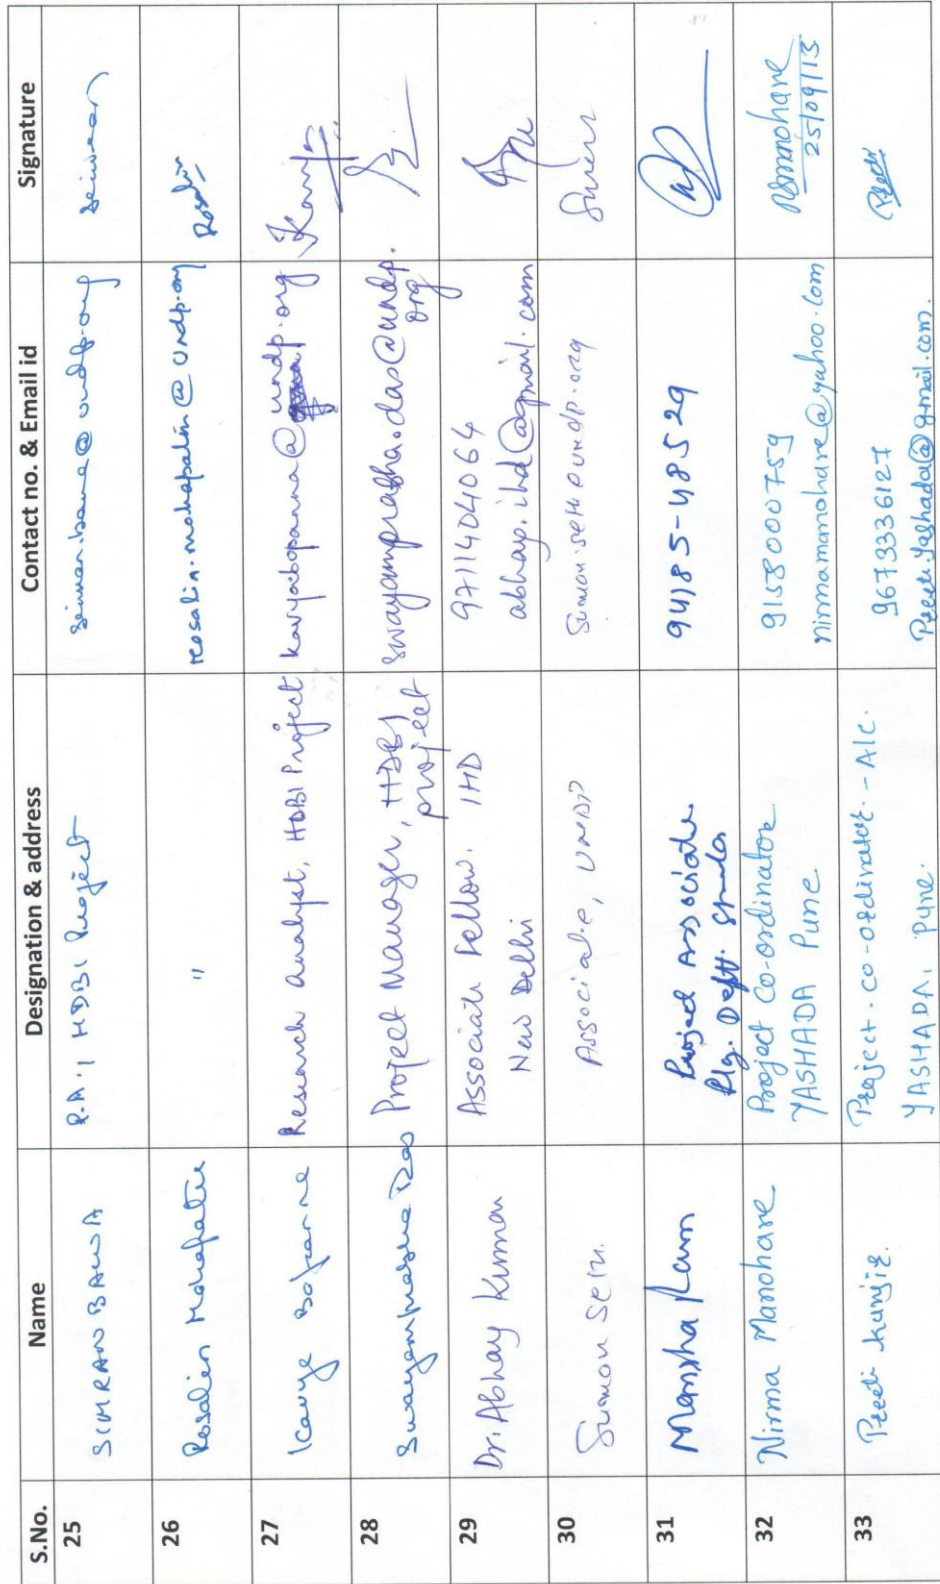 S.No. Name Designation & address Contact no. & Email id Signature
25 SIMRAN BAWA R.A., HDBI Project simran.bawa@undp.org Simran
26 Rosalin Mohapatra " rosalin.mohapatra@undp.org Rosalin
27 Kavya Bopanna Research Analyst, HDBI Project kavyabopanna@undp.org Kavya
28 Swayamprabha Das Project Manager, HDBI
project
swayamprabha.das@undp.
org
29 Dr. Abhay Kumar Associate Fellow. IHD
New Delhi
9711404064
abhay.ihd@gmail.com
30 Sumon Seth. Associate, UNDP sumon.seth@undp.org
31 Mansha Ram Project Associate
Plg. Deptt. Shimla
94185-48529
32 Nirma Manohare Project Co-ordinator
YASHADA Pune
9158000759
nirmamanohare@yahoo.com
Nsmanohare
25/09/13
33 Preeti Kunjir. Project.co-ordinator.-AIC.
YASHADA. Pune.
9673336127
Preeti.Yashada@gmail.com.
Preeti